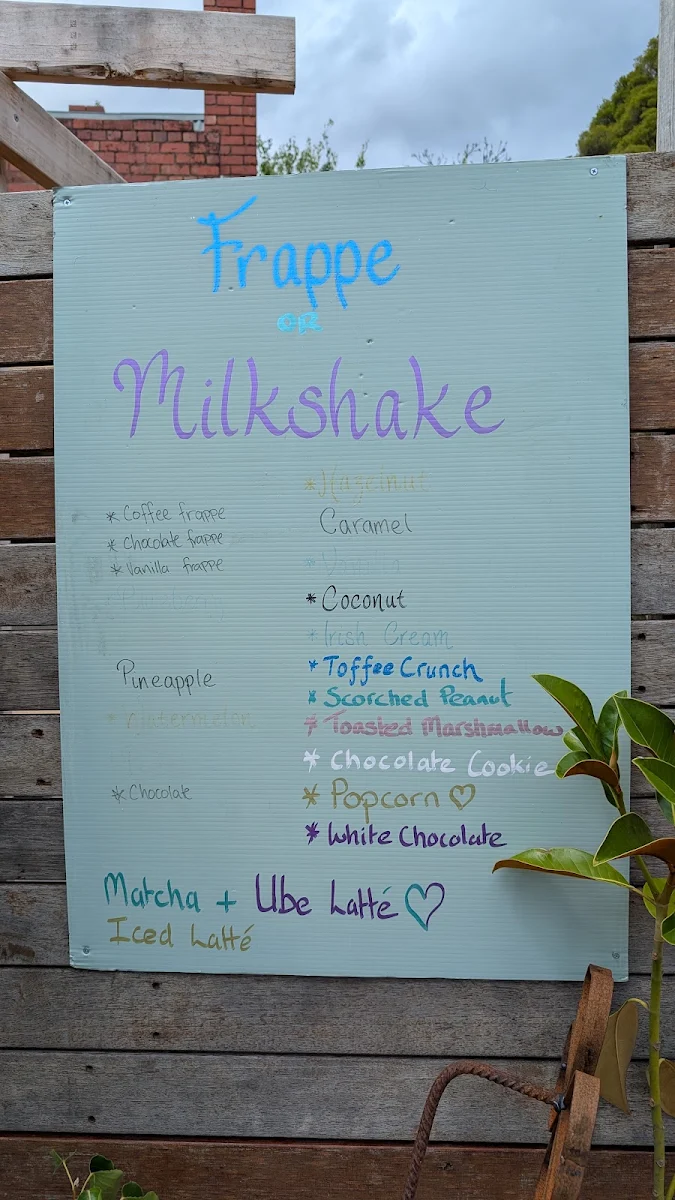 Frappe
OR
Milkshake
* Coffee frappe
* Chocolate frappe
* Vanilla frappe
Pineapple
* Watermelon
* Chocolate
* Hazelnut
Caramel
* Coconut
* Irish Cream
* Toffee Crunch
* Scorched Peanut
* Toasted Marshmallow
* Chocolate Cookie
* Popcorn ♡
* White Chocolate
Matcha + Ube Latté ♡
Iced Latté